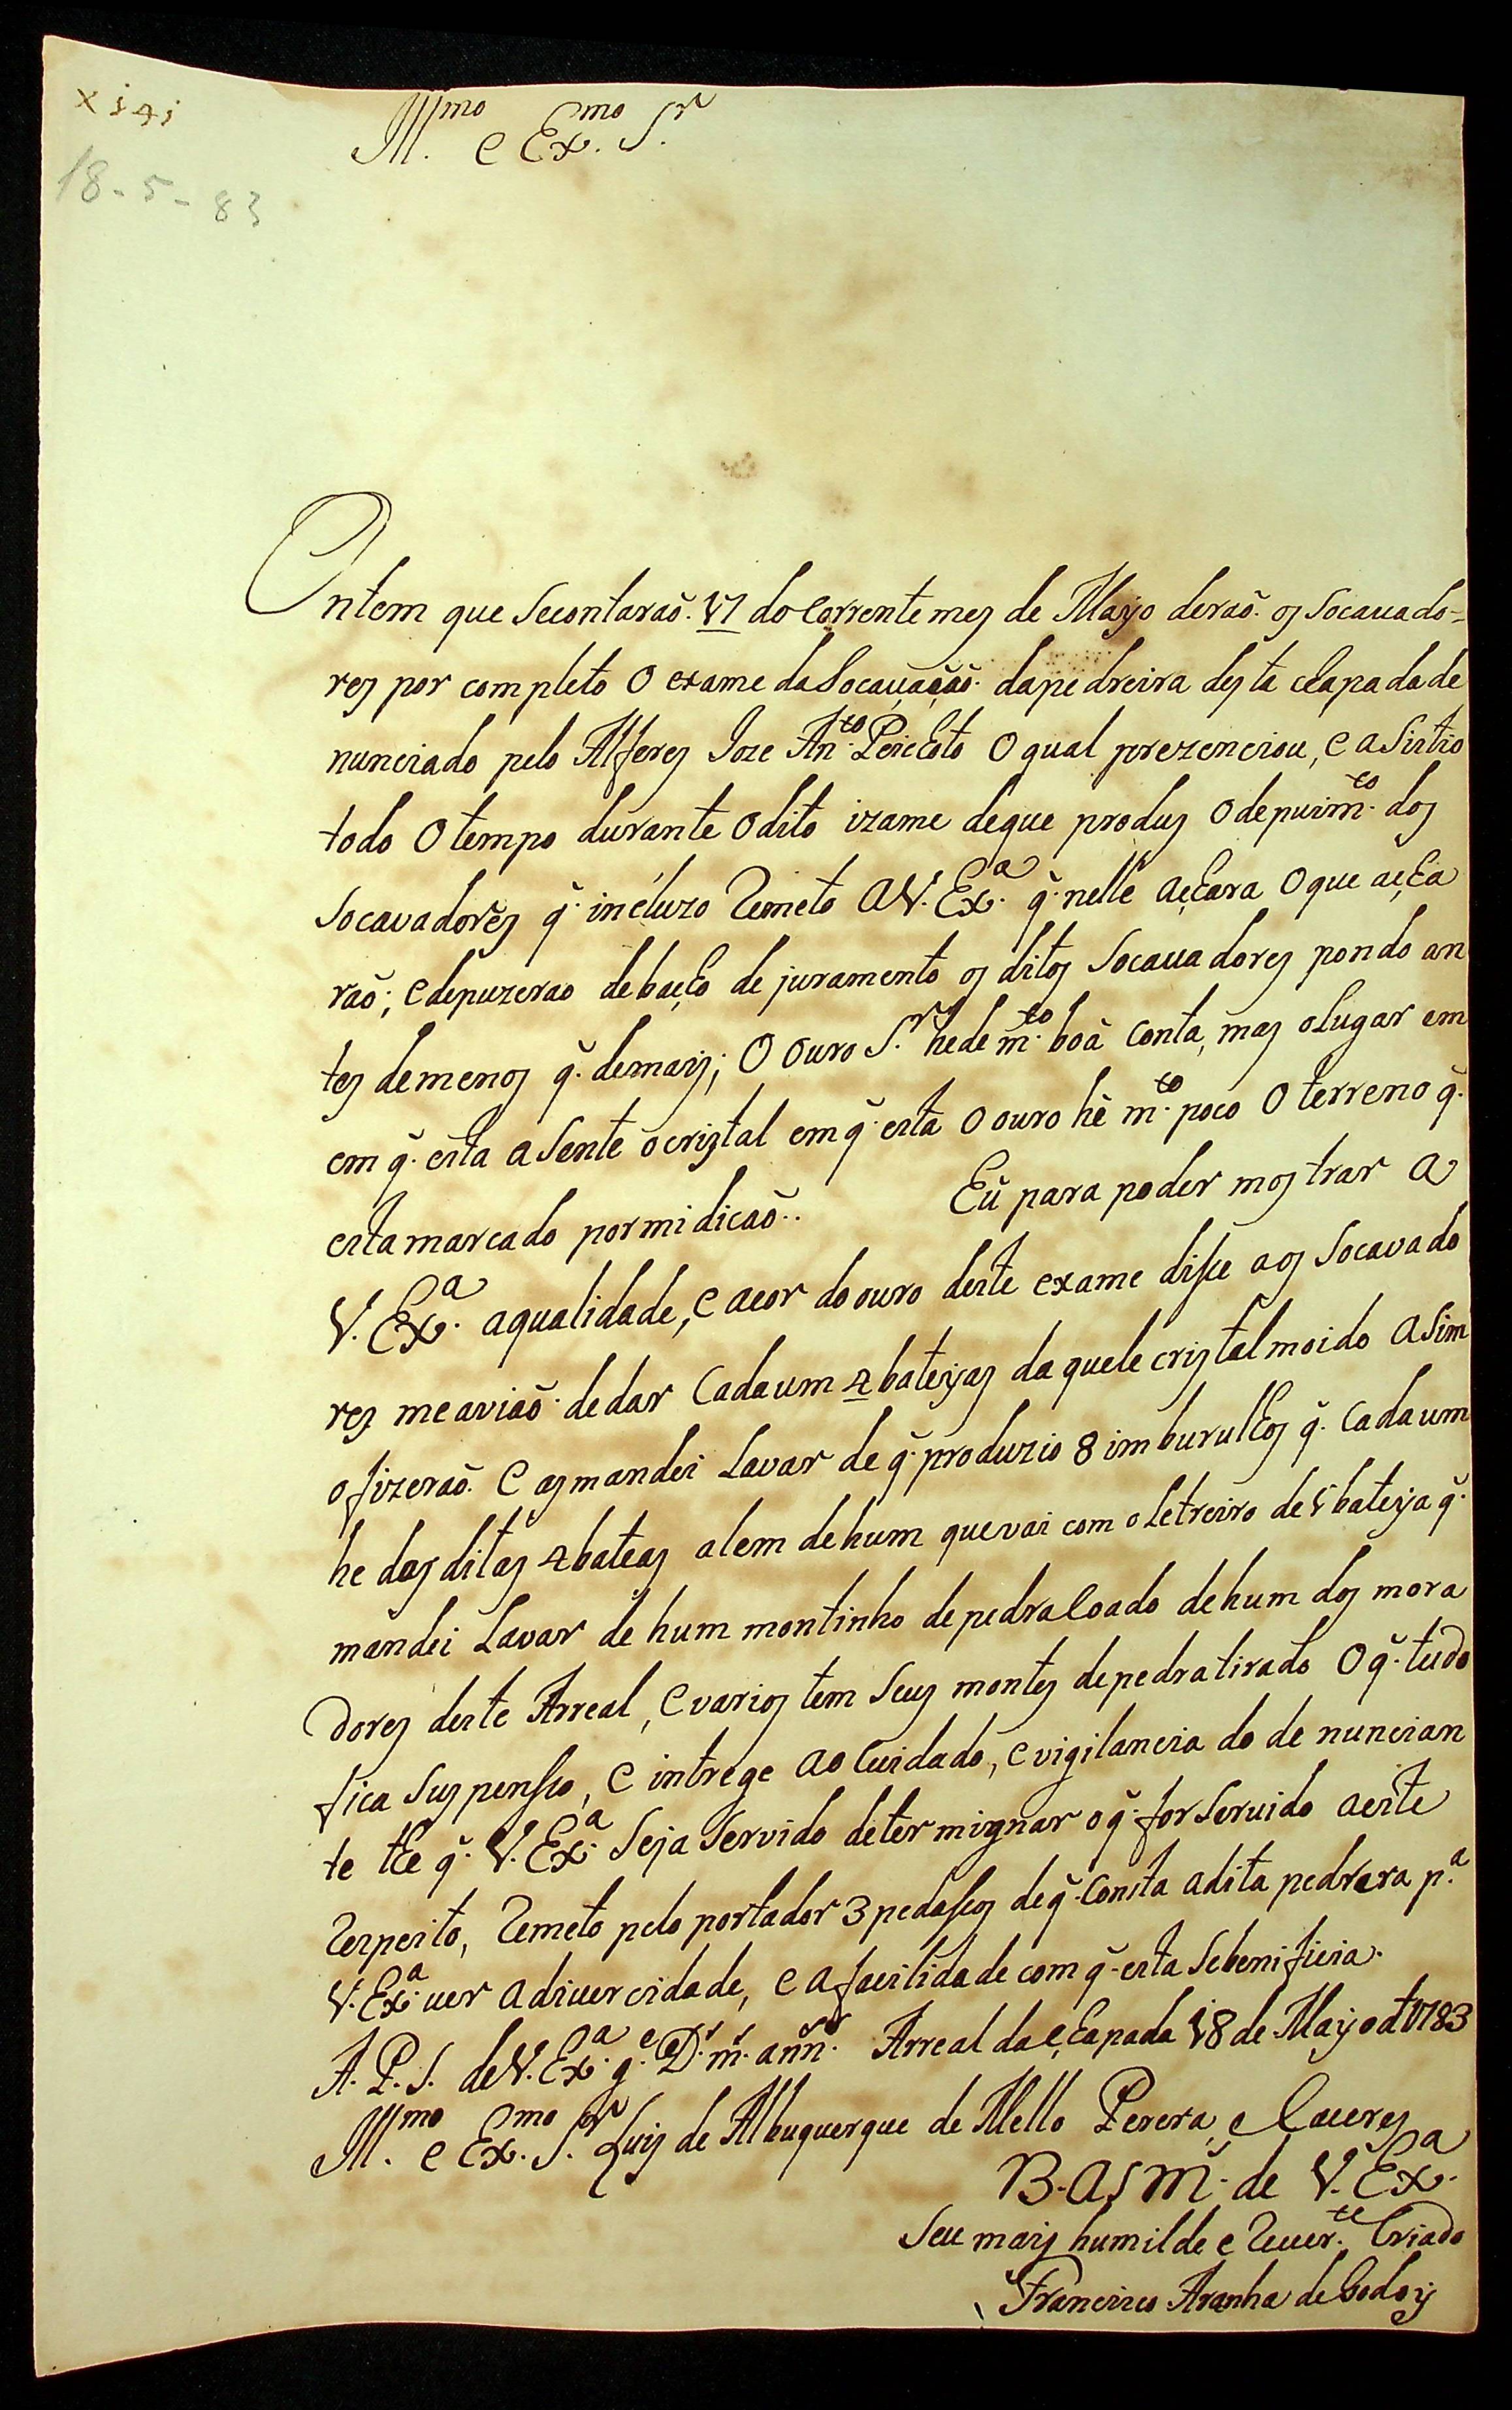 x i 4 i
18-5-83
Ill.mo e Ex.mo S.r
Ontem que Secontaraõ. 17 do Corrente mes de Mayo deraõ. os Socauado=
res por completo O exame da Socauaçaõ. dapedreira desta chapada de
nunciado pelo Alferes Joze An.to Peichoto O qual prezenciou, e aSistio
todo O tempo durante Odito izame deque produs Odepuim.to dos
Socavadores q̃. incluzo Remeto AV. Ex.a q̃. nelle achara Oque acha
raõ; e depuzerao debacho de juramento os ditos Socauadores pondo an
tes demenos q̃. demais; O Ouro S.r hede m.to boa Conta, mas oLugar em
em q̃. esta aSente ocristal emq̃. esta O ouro hê m.to poco O terreno q̃.
esta marcado por midicaõ.. Eũ para poder mostrar a
V. Ex.a aqualidade, e acor do ouro deste exame disce aos Socavado
res me aviaõ. dedar Cadaum 4 bateyas daquele cristal moido aSim
ofizeraõ. e asmandei Lavar de q̃. produzio 8 imburulhos q̃. Cadaum
he das ditas 4 bateas alem dehum quevai com oLetreiro de 1 bateya q̃.
mandei Lavar de hum montinho depedra Coado dehum dos mora
dores deste Arreal, e varios tem Seus montes depedra tirado Oq̃. tudo
fica Suspensco, e intrege ao Cuidado, e vigilancia do denuncian
te the q̃. V. Ex.a Seja Servido detĕrmignar oq̃. for Seruido aeste
Respeito, Remeto pelo portador 3 pedascos deq̃. Consta adita pedrera p.a
V. Ex.a uer adiuercidade, e afacilidade com q̃. esta Sebenificia.
A. P. S. deV. Ex.a g.e D.s m.s ann.s Arreal da chapada 18 de Mayo d 1783
Ill.mo e Ex.mo S.r Luis de Albuquerque de Mello Perera, e Caceres
B. as M. de V. Ex.a
Seu mais humilde e Reuer.te Criado
Francisco Aranha de Godoy